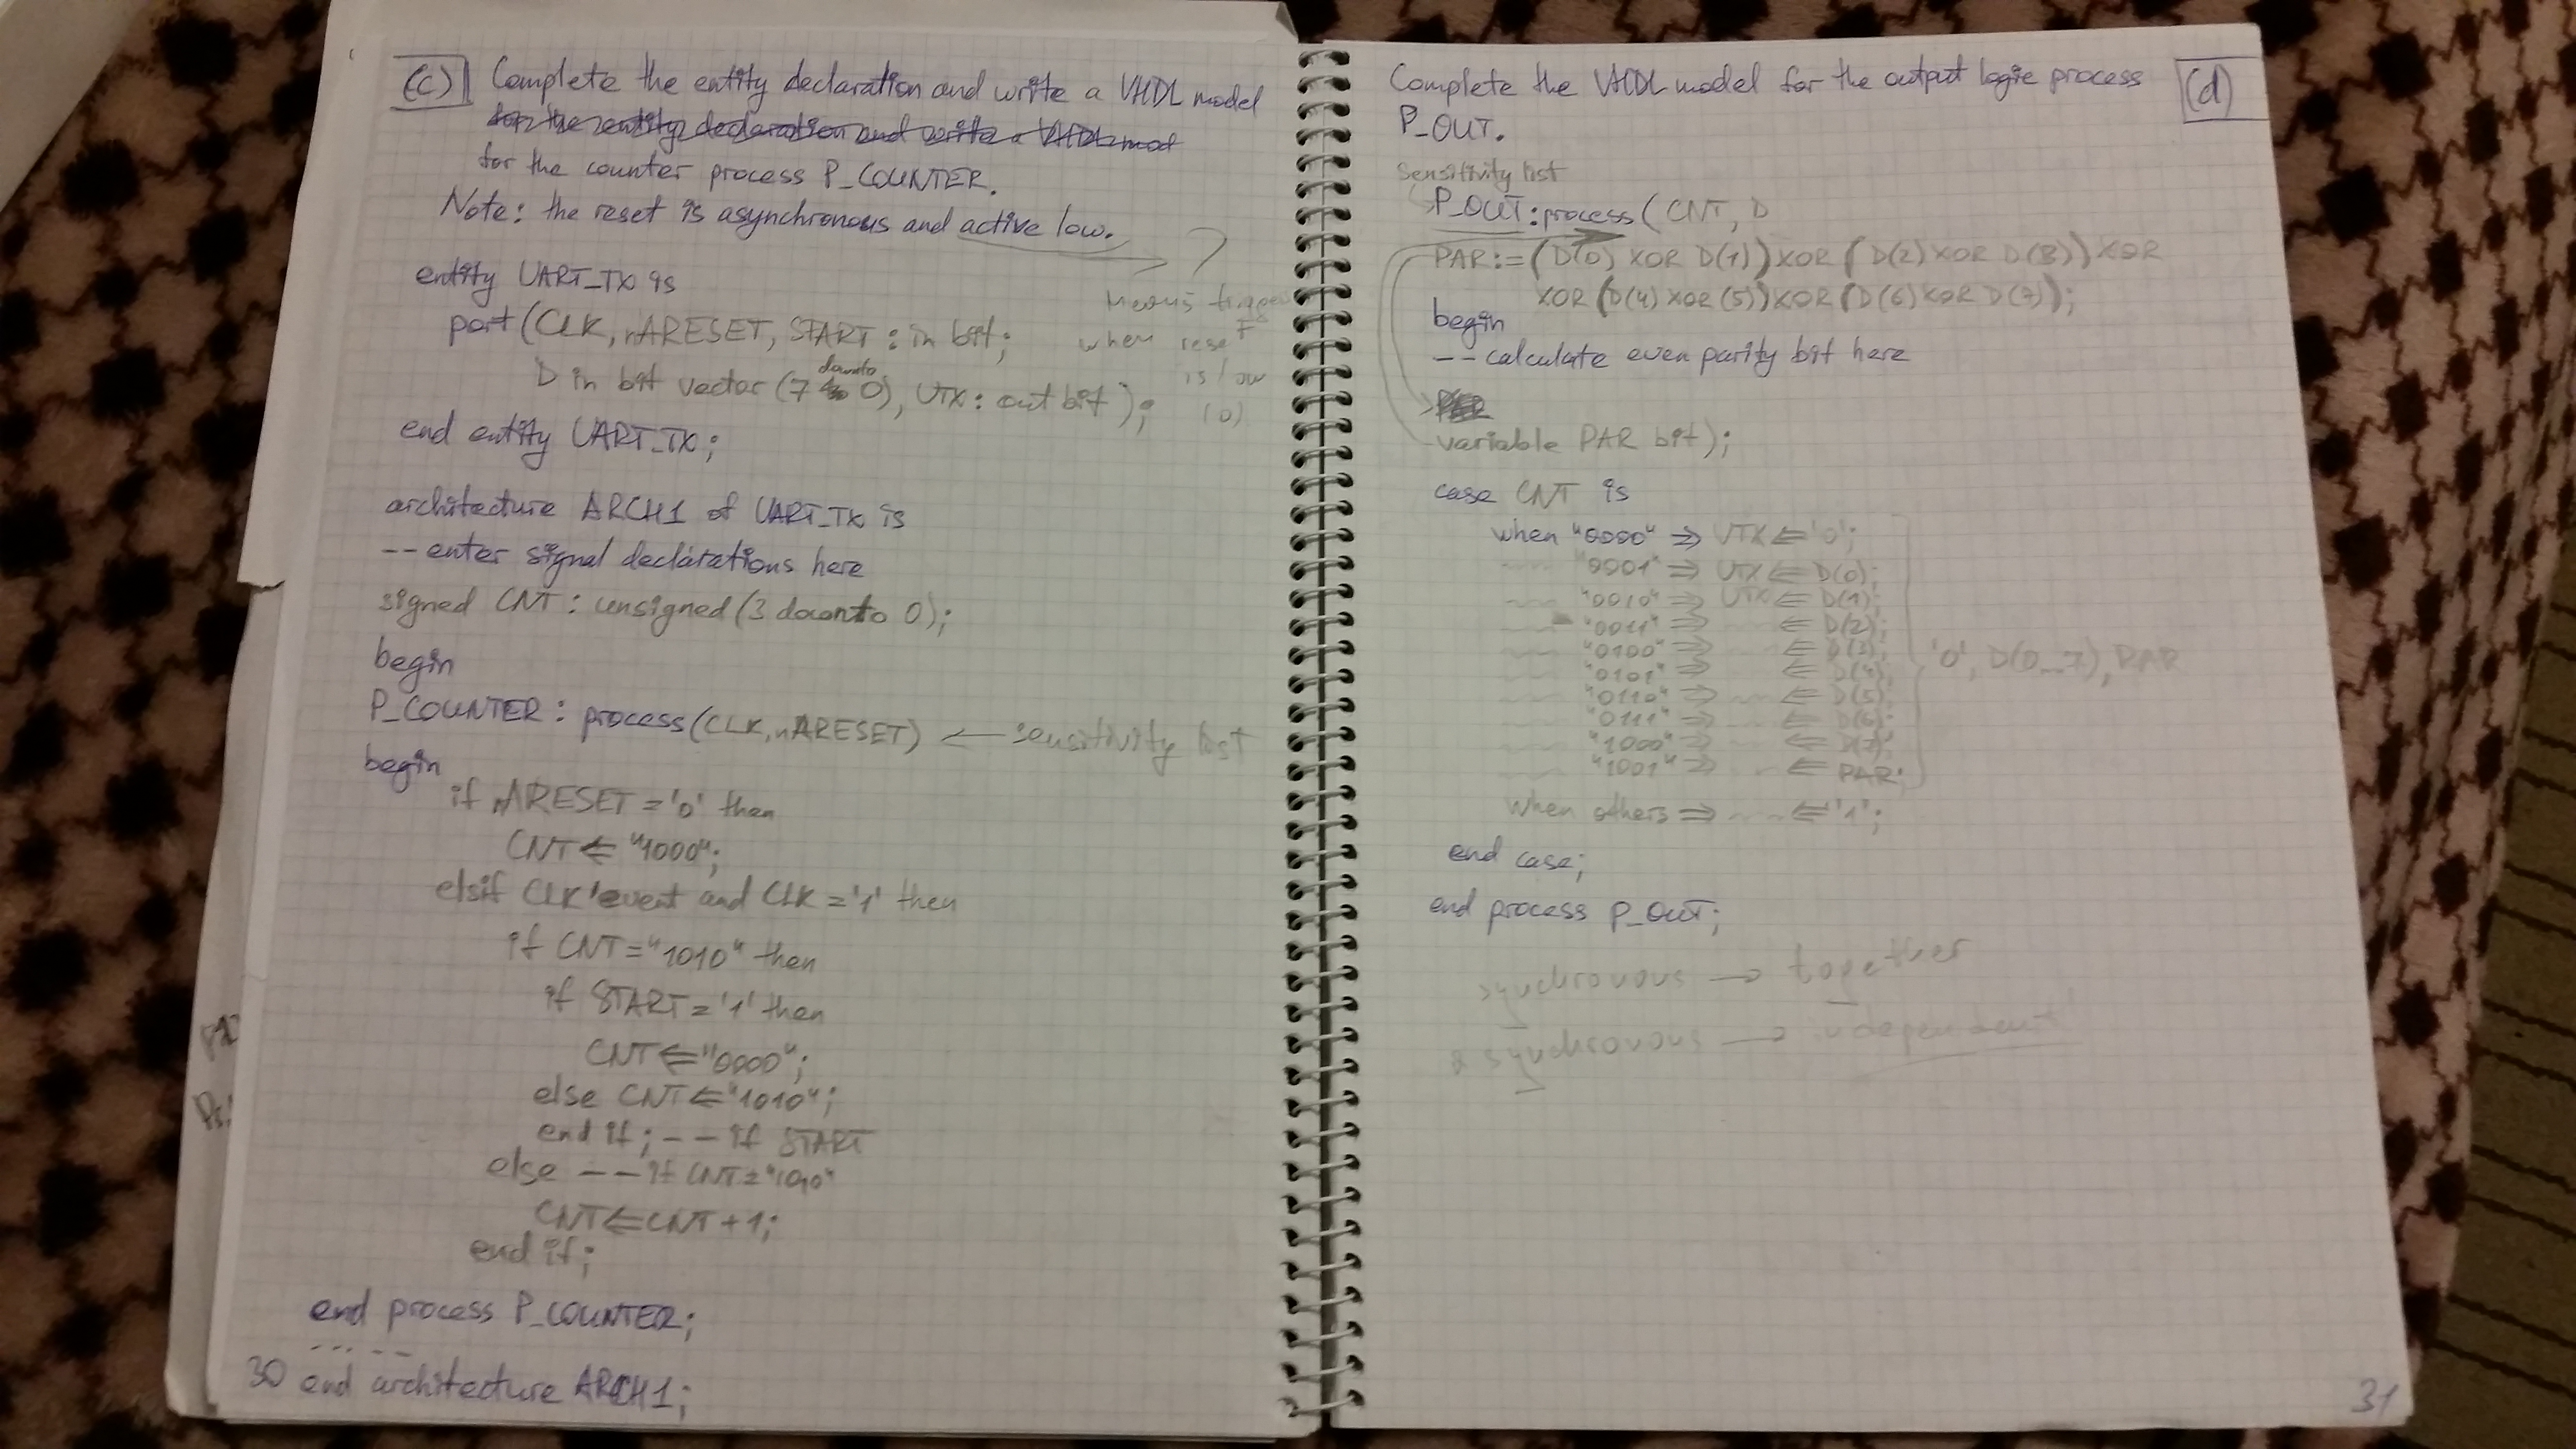 (c) Complete the entity declaration and write a VHDL model
for the entity declaration and write a VHDL mod
for the counter process P_COUNTER.
Note: the reset is asynchronous and active low.
?
Means trigger
when reset
is low
(0)
entity UART_TX is
port (CLK, nARESET, START : in bit;
D in bit vector (7 downto 0), UTX : out bit );
end entity UART_TX;
architecture ARCH1 of UART_TX is
-- enter signal declarations here
signed CNT : unsigned (3 downto 0);
begin
P_COUNTER : process (CLK, nARESET) ← sensitivity list
begin
if nARESET = '0' then
CNT <= "1000";
elsif CLK'event and CLK = '1' then
if CNT = "1010" then
if START = '1' then
CNT <= "0000";
else CNT <= "1010";
end if; -- if START
else -- if CNT = "1010"
CNT <= CNT + 1;
end if;
end process P_COUNTER;
.....
30 end architecture ARCH1;
Complete the VHDL model for the output logic process (d)
P_OUT.
Sensitivity list
P_OUT : process ( CNT, D
PAR := (D(0) XOR D(1)) XOR (D(2) XOR D(3)) XOR
XOR (D(4) XOR (5)) XOR (D(6) XOR D(7));
begin
-- calculate even parity bit here
variable PAR bit);
case CNT is
when "0000" => UTX <= '0';
"0001" => UTX <= D(0);
"0010" => UTX <= D(1);
"0011" => <= D(2);
"0100" => <= D(3);
"0101" => <= D(4);
"0110" => <= D(5);
"0111" => <= D(6);
"1000" => <= D(7);
"1001" => <= PAR;
'0', D(0...7), PAR
when others => <= '1';
end case;
end process P_OUT;
synchronous → together
asynchronous → independent
31